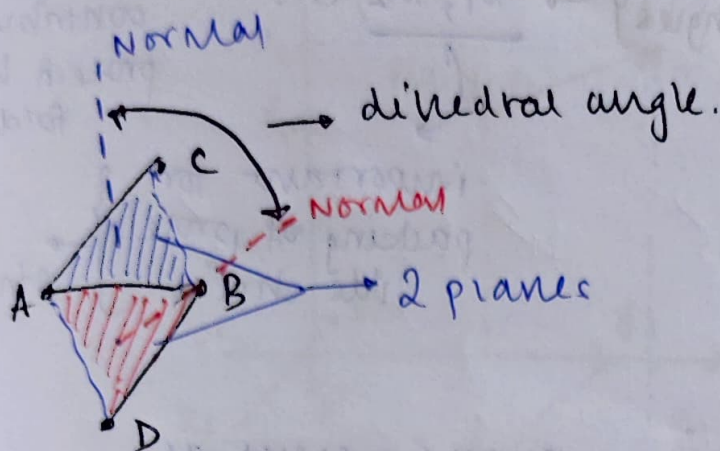 Normal
dihedral angle.
C
Normal
A
B
2 planes
D